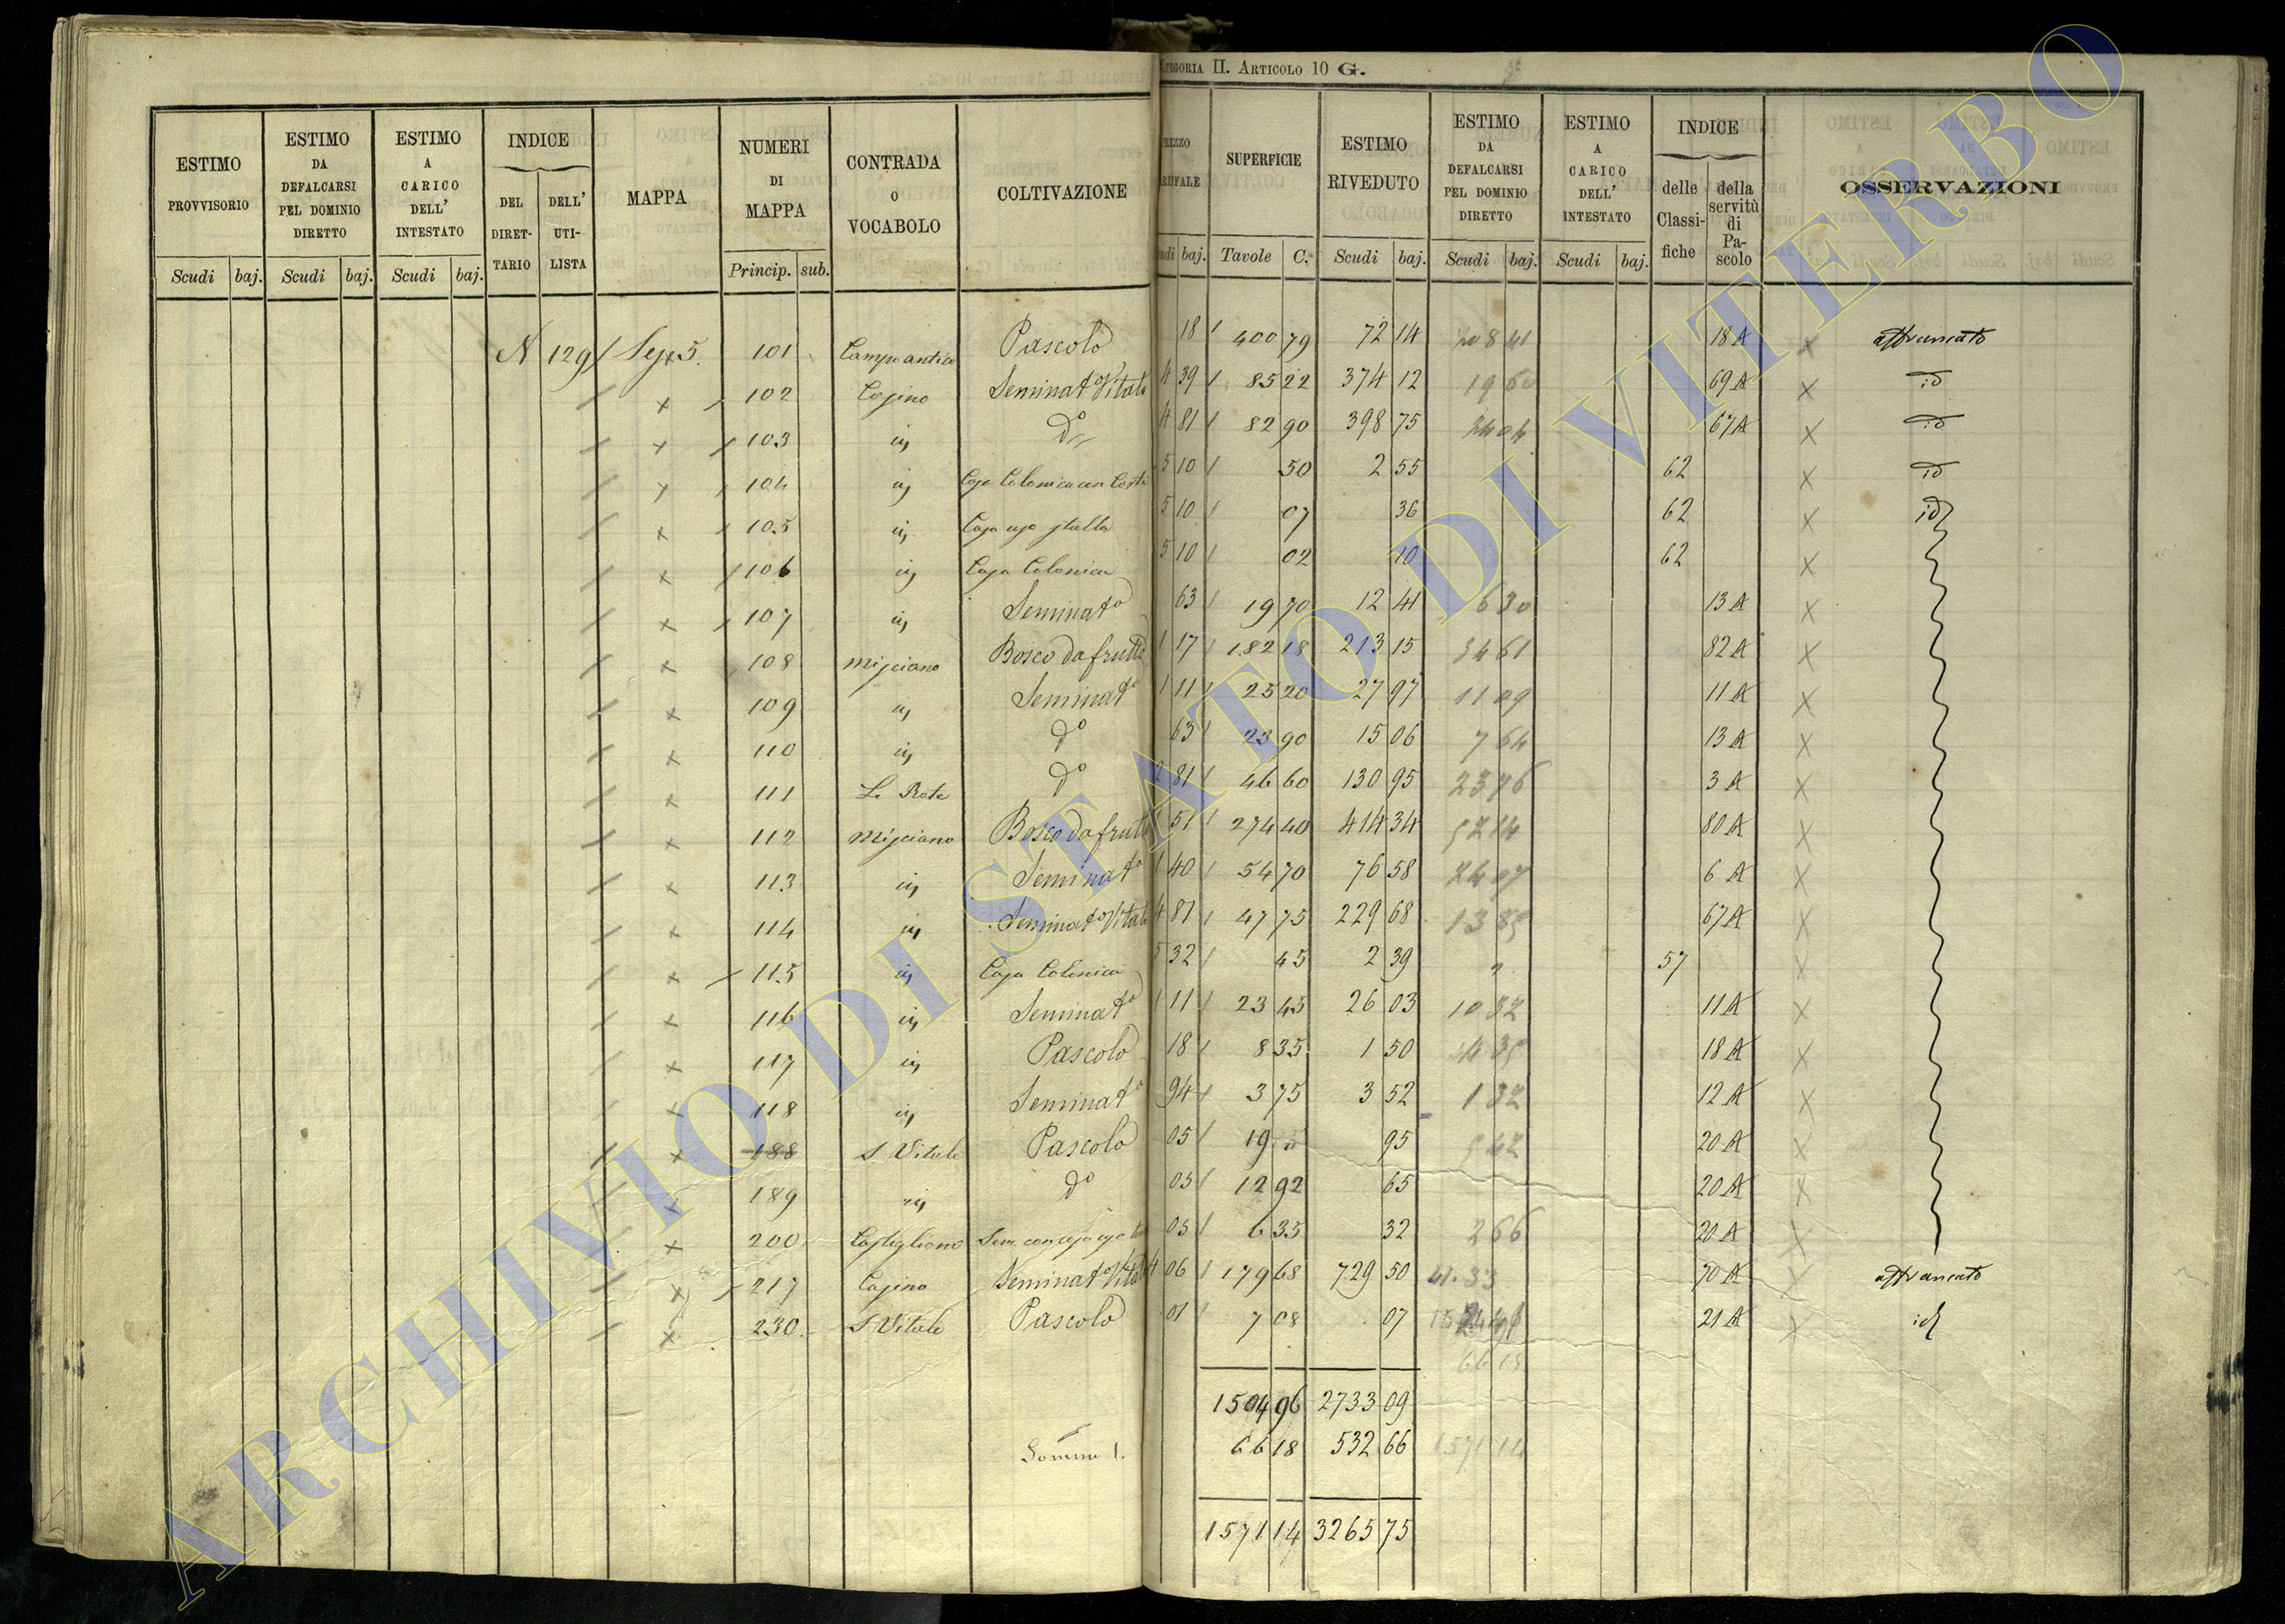 CATEGORIA II. ARTICOLO 10 G.
ESTIMO PROVVISORIO Scudi baj.
ESTIMO DA DEFALCARSI PEL DOMINIO DIRETTO Scudi baj.
ESTIMO A CARICO DELL' INTESTATO Scudi baj.
INDICE DEL DIRET-TARIO DELL' UTI-LISTA
MAPPA
NUMERI DI MAPPA Princip. sub.
CONTRADA O VOCABOLO
COLTIVAZIONE
PREZZO TARIFFALE Scudi baj.
SUPERFICIE Tavole C.
ESTIMO RIVEDUTO Scudi baj.
ESTIMO DA DEFALCARSI PEL DOMINIO DIRETTO Scudi baj.
ESTIMO A CARICO DELL' INTESTATO Scudi baj.
INDICE delle Classi-fiche della servitù di Pa-scolo
OSSERVAZIONI
N 129 101 Campo antico Pascolo 18 400 79 72 14 18 A affrancato
102 Casino Seminato Vitato 4 39 85 22 374 12 19 60 69 A id
103 id do 4 81 82 90 398 75 67 A id
104 id Casa Colonica con Corte 5 10 50 2 55 62 id
105 id Casa uso stalla 5 10 07 36 62 id
106 id Casa Colonica 5 10 02 10 62
107 id Seminato 63 19 70 12 41 6 30 13 A
108 Misciano Bosco da frutto 1 17 182 18 213 15 34 61 82 A
109 id Seminato 1 11 25 20 27 97 11 09 11 A
110 id do 63 23 90 15 06 7 64 13 A
111 Le Rote do 2 81 46 60 130 95 23 76 3 A
112 Misciano Bosco da frutto 1 51 274 40 414 34 80 A
113 id Seminato 1 40 54 70 76 58 6 A
114 id Seminato Vitato 4 81 47 75 229 68 67 A
115 id Casa Colonica 5 32 45 2 39 57
116 id Seminato 1 11 23 45 26 03 10 32 11 A
117 id Pascolo 18 8 35 1 50 18 A
118 id Seminato 94 3 75 3 52 1 32 12 A
188 S Vitale Pascolo 05 19 " 95 20 A
189 id do 05 12 92 65 20 A
200 Castiglione Sem. con 05 6 35 32 2 66 20 A
217 Casino Seminato Vitato 4 06 179 68 729 50 41.33 70 A affrancato
230 S Vitale Pascolo 01 7 08 07 21 A id
66 18
1504 96 2733 09
Somma 66 18 532 66 1571 14
1571 14 3265 75
ARCHIVIO DI STATO DI VITERBO